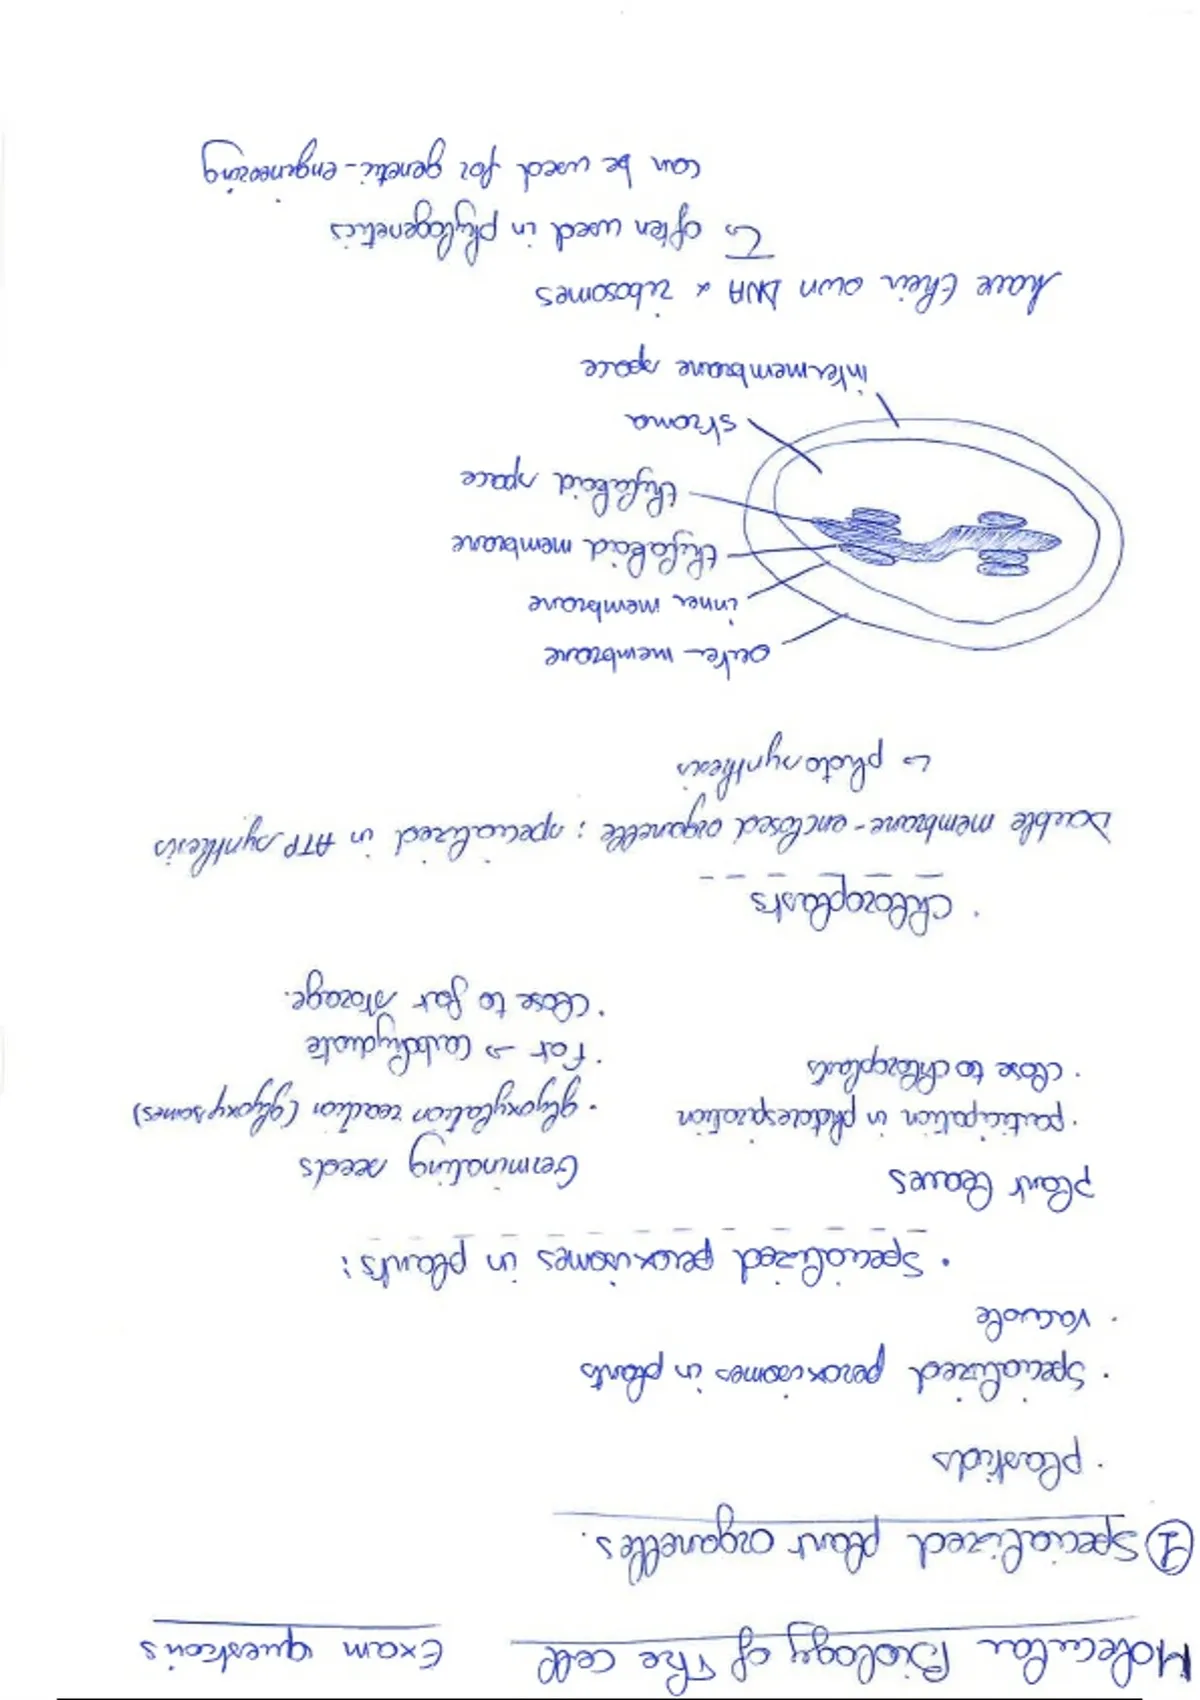 Molecular Biology of the Cell Exam questions
① Specialized plant organelles.
· plastids
· Specialized peroxisomes in plants
· Vacuole
· Specialized peroxisomes in plants:
plant leaves Germinating seeds
· participation in photorespiration · glyoxylation reaction (glyoxysomes)
· close to chloroplasts · Fat → Carbohydrate
· close to fat storage.
· Chloroplasts
Double membrane-enclosed organelle: specialized in ATP synthesis
↳ photosynthesis
outer membrane
inner membrane
thylakoid membrane
thylakoid space
stroma
intermembrane space
have their own DNA & ribosomes
↳ often used in phylogenetics
can be used for genetic-engineering